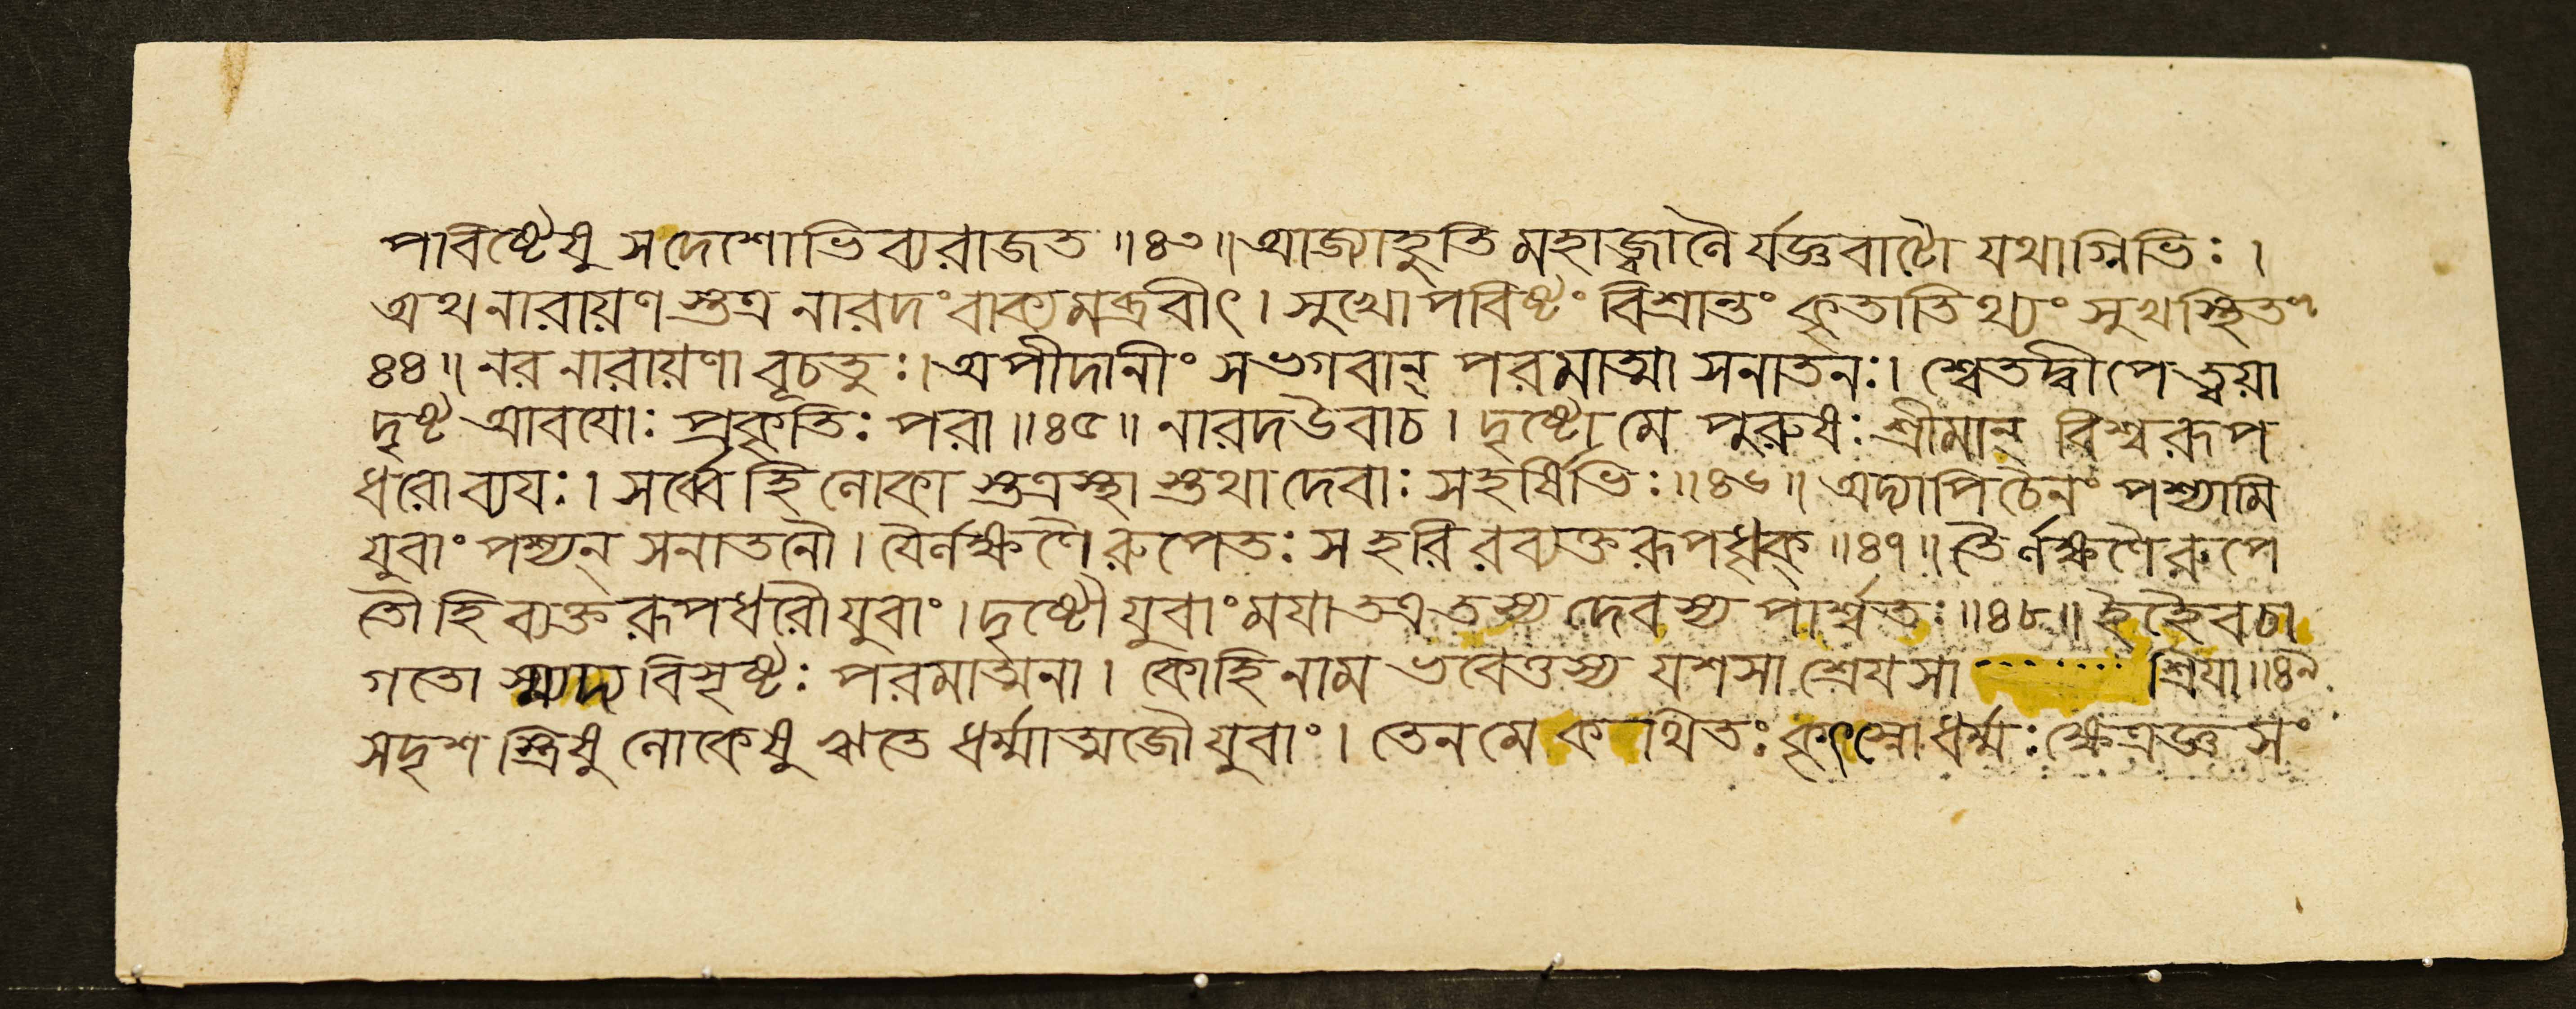 পবিষ্টেষু স দেশোভিব্যরাজত ॥৪৩॥ আজ্যাহুতি মহাজ্বালৈর্যজ্ঞবাটো যথাগ্নিভিঃ ।
অথ নারায়ণস্তত্র নারদং বাক্যমব্রবীৎ । সুখোপবিষ্টং বিশ্রান্তং কৃতাতিথ্যং সুখস্থিতং ॥
৪৪ ॥ নরনারায়ণাবূচতুঃ । অপীদানীং স ভগবান্ পরমাত্মা সনাতনঃ । শ্বেতদ্বীপে ত্বয়া
দৃষ্ট আবযোঃ প্রকৃতিঃ পরা ॥৪৫॥ নারদ উবাচ । দৃষ্টো মে পুরুষঃ শ্রীমান্ বিশ্বরূপ
ধরোব্যযঃ । সর্ব্বে হি লোকাস্তত্রস্থাস্তথা দেবাঃ সহর্ষিভিঃ ॥৪৬॥ অদ্যাপি চৈনং পশ্যামি
যুবাং পশ্যন্ সনাতনৌ । যৈর্লক্ষণৈরুপেতঃ স হরিরব্যক্তরূপধৃক্ ॥৪৭॥ তৈর্লক্ষণৈরুপে
তৌ হি ব্যক্তরূপধরৌ যুবাং । দৃষ্টৌ যুবাং মযা তত্র তস্য দেবস্য পার্শ্বতঃ ॥৪৮॥ ইহৈব চা
গতোস্ম্যদ্য বিসৃষ্টঃ পরমাত্মনা । কো হি নাম ভবেত্তস্য যশসা শ্রেযসা ........ শ্রিযা ॥৪৯
সদৃশস্ত্রিষু লোকেষু ঋতে ধর্ম্মাত্মজৌ যুবাং । তেন মে কথিতঃ কৃৎস্নো ধর্ম্মঃ ক্ষেত্রজ্ঞসং